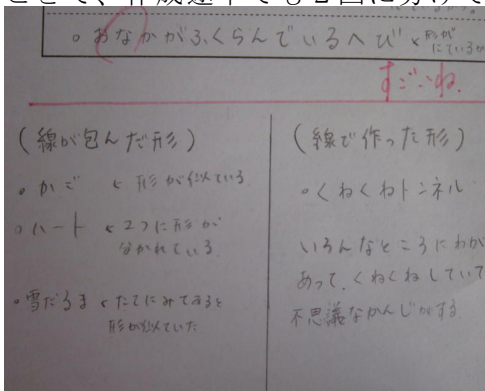 。おなかがふくらんでいるへび ←形が
にている
すごいね。
(線が包んだ形)
。かご ← 形が似ている
。ハート ← 2つに形が
分かれている
。雪だるま ← たてにみてみると
形が似ていた
(線で作った形)
。くねくねトンネル
いろんなところにわが
あって、くねくねしていて
不思議なかんじがする